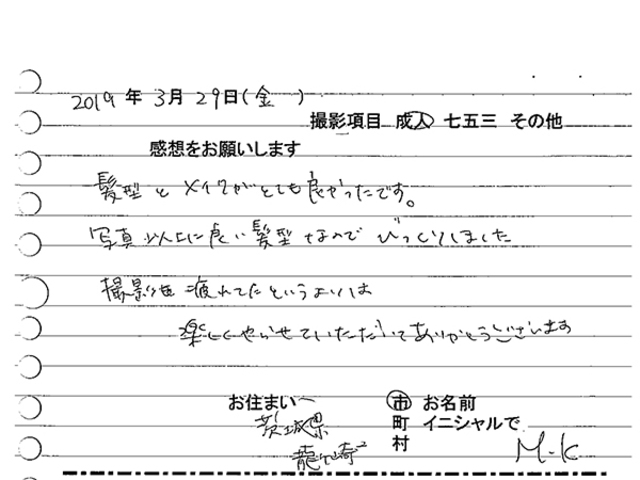 2019年 3月 29日(金 )
撮影項目 成人 七五三 その他
感想をお願いします
髪型とメイクがとても良かったです。
写真以上に良い髪型なのでびっくりしました
撮影は疲れてたというよりは
楽しくやらせていただいてありがとうございます
お住まい 市 お名前
茨城県 町 イニシャルで
龍ヶ崎 村 M.K